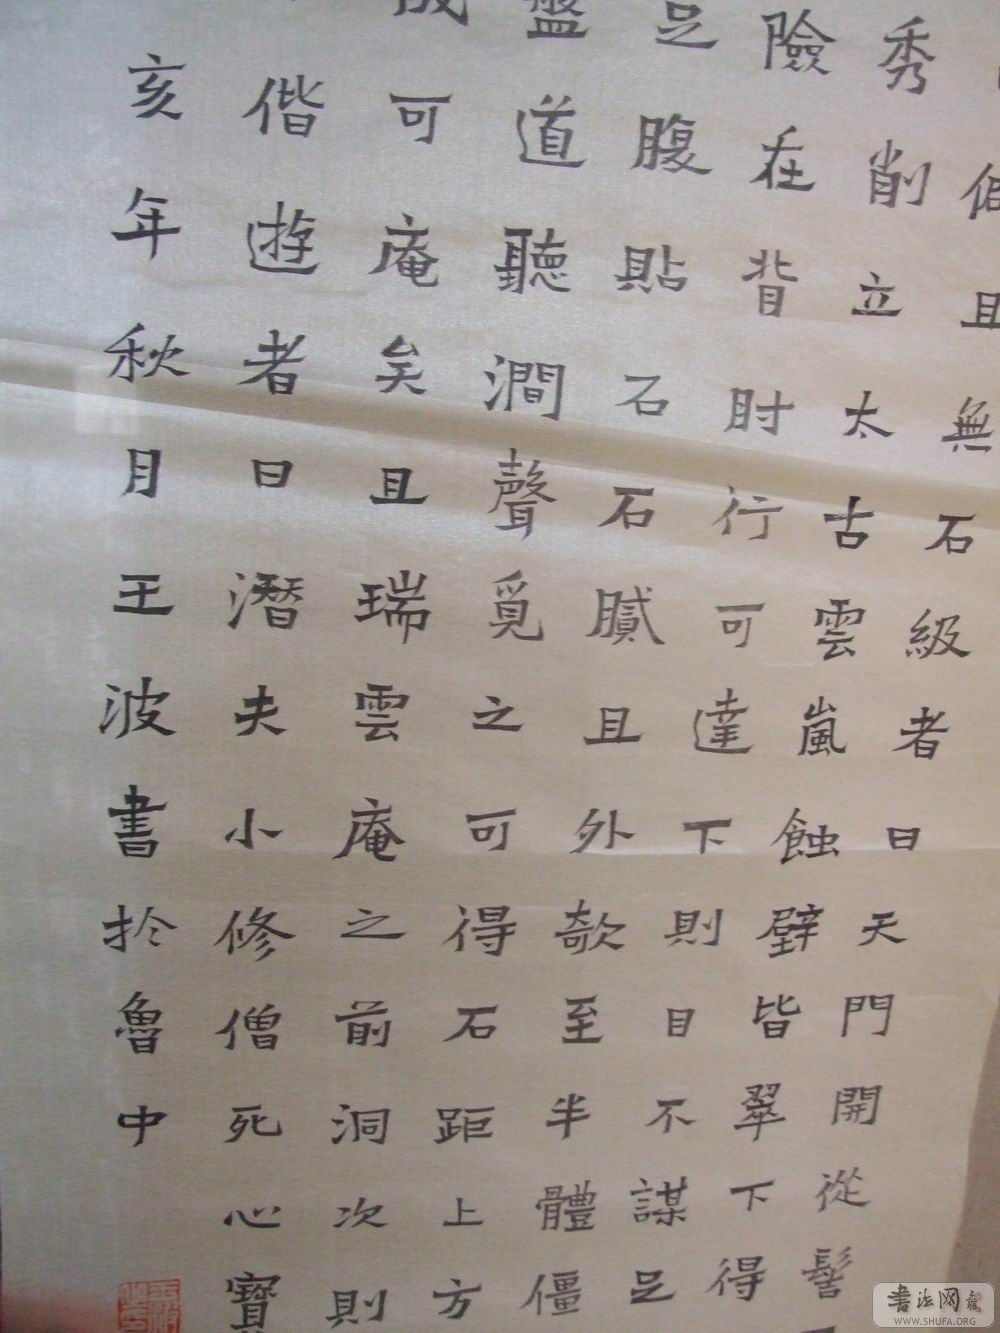 且無石級者曰天門開從髻
秀削立太古雲嵐蝕壁皆翠下得
險在背肘行可達下則目不謀足
足腹貼石石膩且外欹至半體僵
盤道聽澗聲覓之可得石距上方
可庵矣且瑞雲庵之前洞次則
偕遊者曰潛夫小修僧死心寶
亥年秋月王波書於魯中
書法网
WWW.SHUFA.ORG